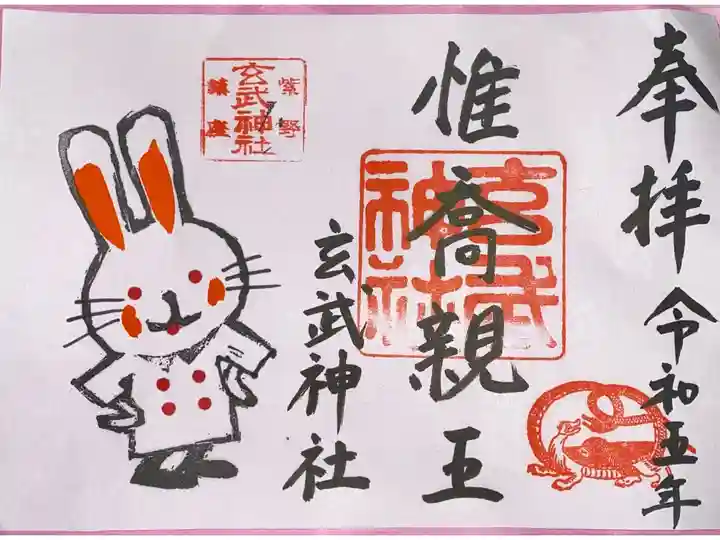 奉拝 令和五年
惟喬親王
玄武神社
玄武神社
紫野
玄武神社
鎮座